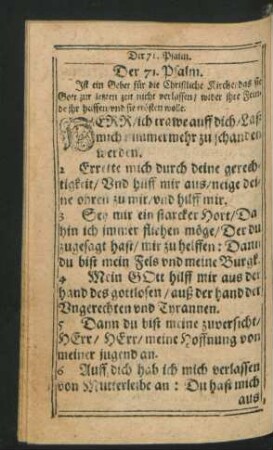 Der 71. Psalm.
Der 71. Psalm.
Ist ein Gebet für die Christliche Kirche/das sie
Gott zur letzten zeit nicht verlassen/wider ihre Fein-
de ihr helffen/und sie trösten wolle.
HERR/ich trawe auff dich/Laß
mich nimmermehr zu schanden
werden.
2 Errette mich durch deine gerech-
tigkeit/Vnd hilff mir aus/neige dei-
ne ohren zu mir/vnd hilff mir.
3 Sey mir ein starcker Hort/Da
hin ich immer fliehen möge/Der du
zugesagt hast/mir zu helffen: Dann
du bist mein Fels vnd meine Burgk.
4 Mein GOtt hilff mir aus der
hand des gottlosen/auß der hand der
Vngerechten vnd Tyrannen.
5 Dann du bist meine zuversicht/
HErr/HErr/meine Hoffnung von
meiner jugend an.
6 Auff dich hab ich mich verlassen
von Mutterleibe an: Du hast mich
aus